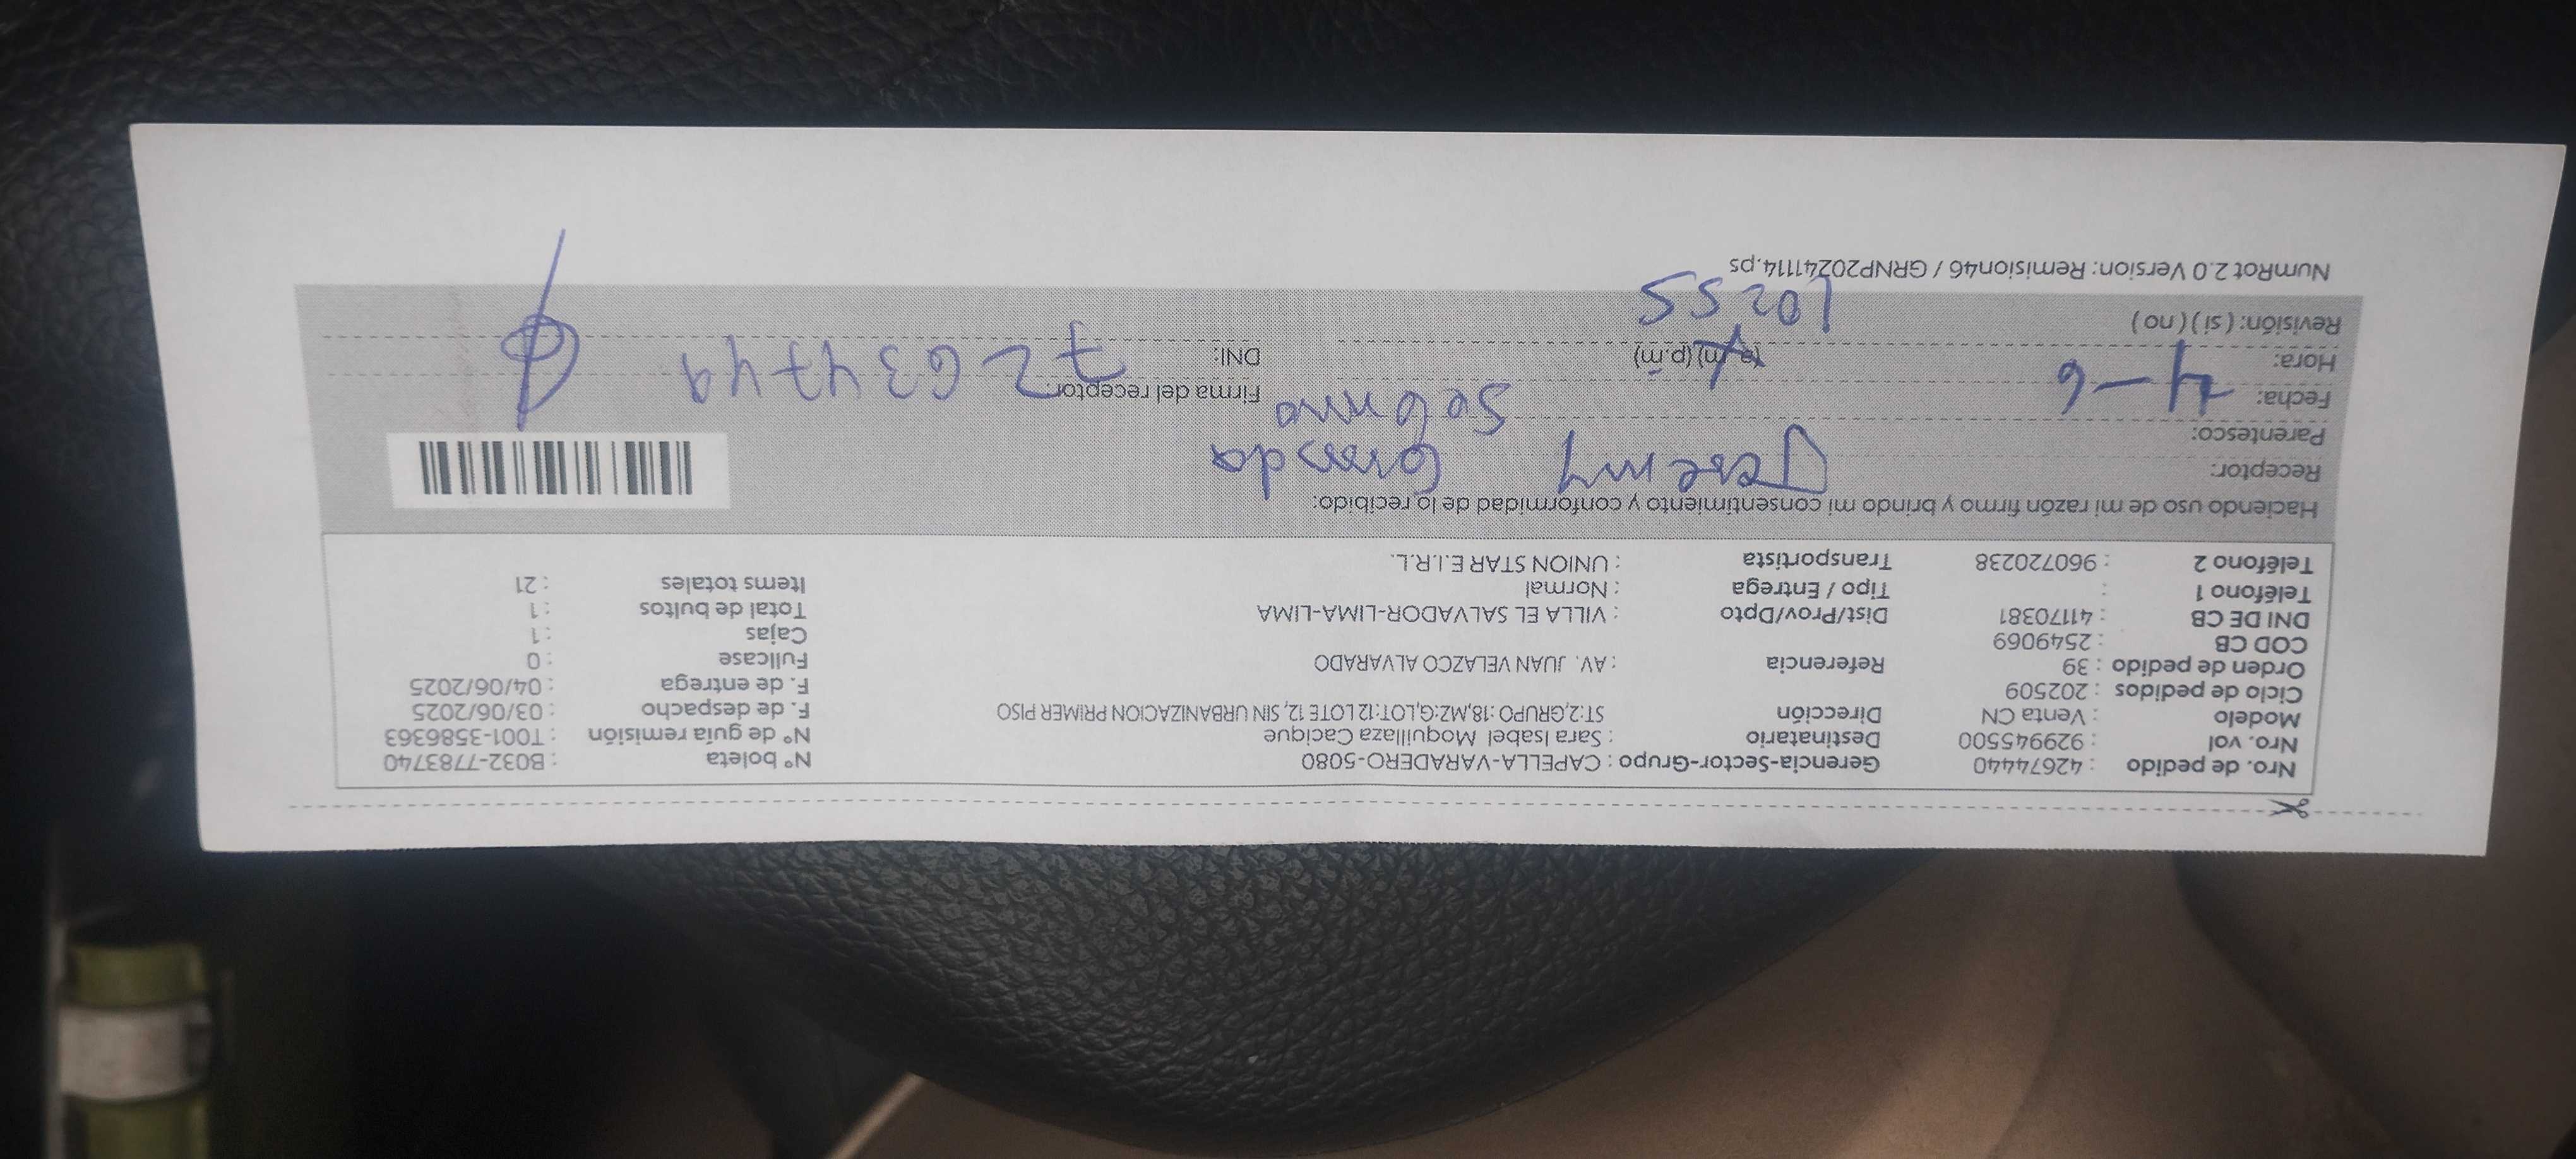 Nro. de pedido : 42674440 Gerencia-Sector-Grupo : CAPELLA-VARADERO-5080 N° boleta : B032-7783740
Nro. vol : 929945500 Destinatario : Sara Isabel Moquillaza Cacique N° de guía remisión : T001-3586363
Modelo : Venta CN Dirección ST:2,GRUPO :18,MZ:G,LOT:12 LOTE 12, SIN URBANIZACION PRIMER PISO F. de despacho : 03/06/2025
Ciclo de pedidos : 202509 F. de entrega : 04/06/2025
Orden de pedido : 39 Referencia : AV. JUAN VELAZCO ALVARADO Fullcase : 0
COD CB : 2549069 Cajas : 1
DNI DE CB : 41170381 Dist/Prov/Dpto : VILLA EL SALVADOR-LIMA-LIMA Total de bultos : 1
Teléfono 1 : Tipo / Entrega : Normal Items totales : 21
Teléfono 2 : 960720238 Transportista : UNION STAR E.I.R.L.
Haciendo uso de mi razón firmo y brindo mi consentimiento y conformidad de lo recibido:
Receptor: Jeremy
Parentesco: Sobrino
Fecha: 4-6 Firma del receptor:
Hora: (a.m) (p.m) DNI: 72634749
Revisión: ( si ) ( no ) 10255
NumRot 2.0 Version: Remision46 / GRNP20241114.ps